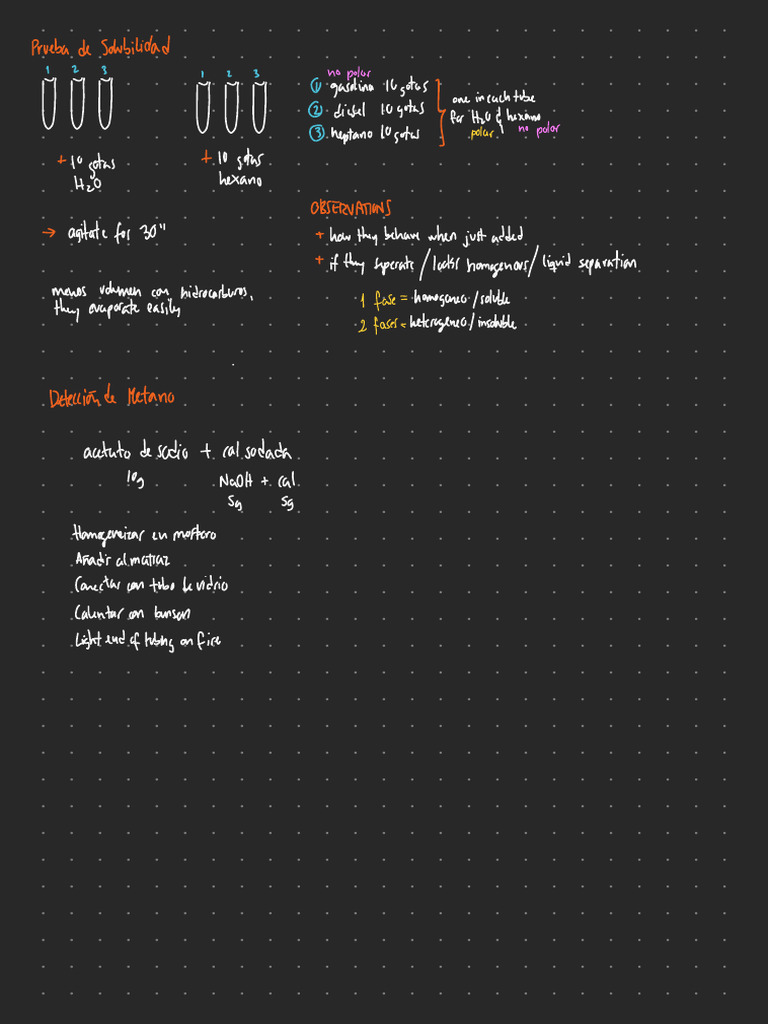 Prueba de Solubilidad
1 2 3
1 2 3
+ 10 gotas
H2O
+ 10 gotas
hexano
no polar
① gasolina 10 gotas
② diesel 10 gotas
③ heptano 10 gotas
one in each tube
for H2O & hexano
polar no polar
→ agitate for 30"
menos volumen con hidrocarburos,
they evaporate easily
OBSERVATIONS
+ how they behave when just added
+ if they seperate / looks homogenous / liquid separation
1 fase = homogeneo / soluble
2 fases = heterogeneo / insoluble
Detección de Metano
acetato de sodio + cal sodada
10g
NaOH + cal
5g 5g
Homogeneizar en mortero
Añadir al matraz
Conectar con tubo de vidrio
Calentar con bunsen
Light end of tubing on fire